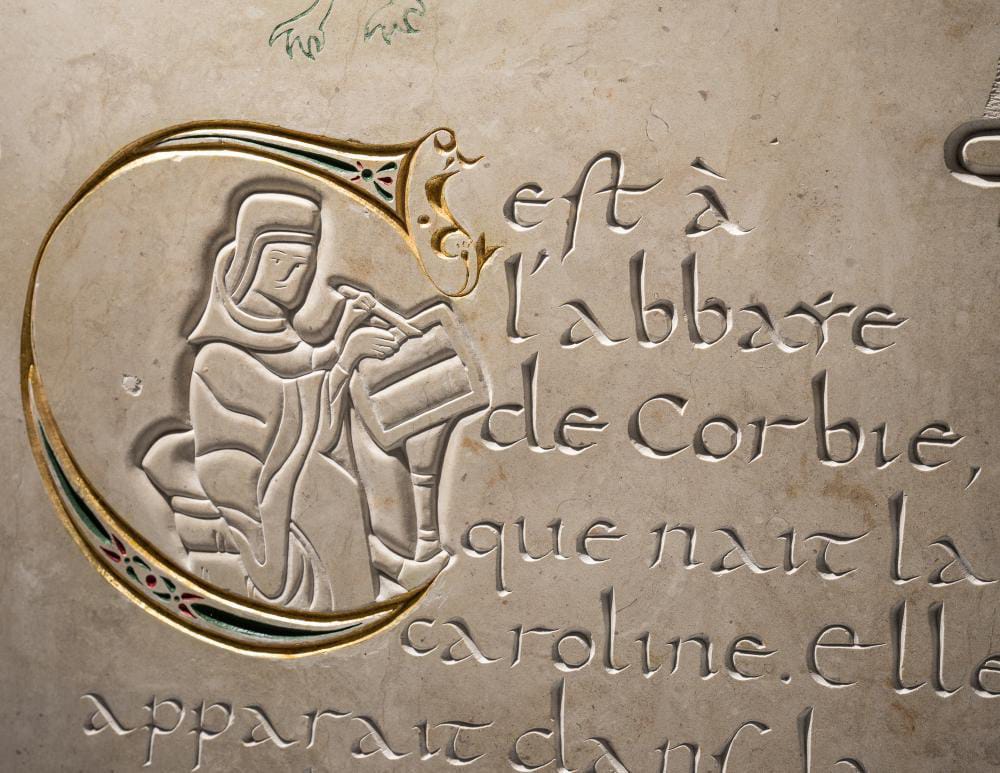 C'eſt à
l'abbaÿe
de Corbıe,
que naıt la
carolıne. Elle
apparaıt danſ la